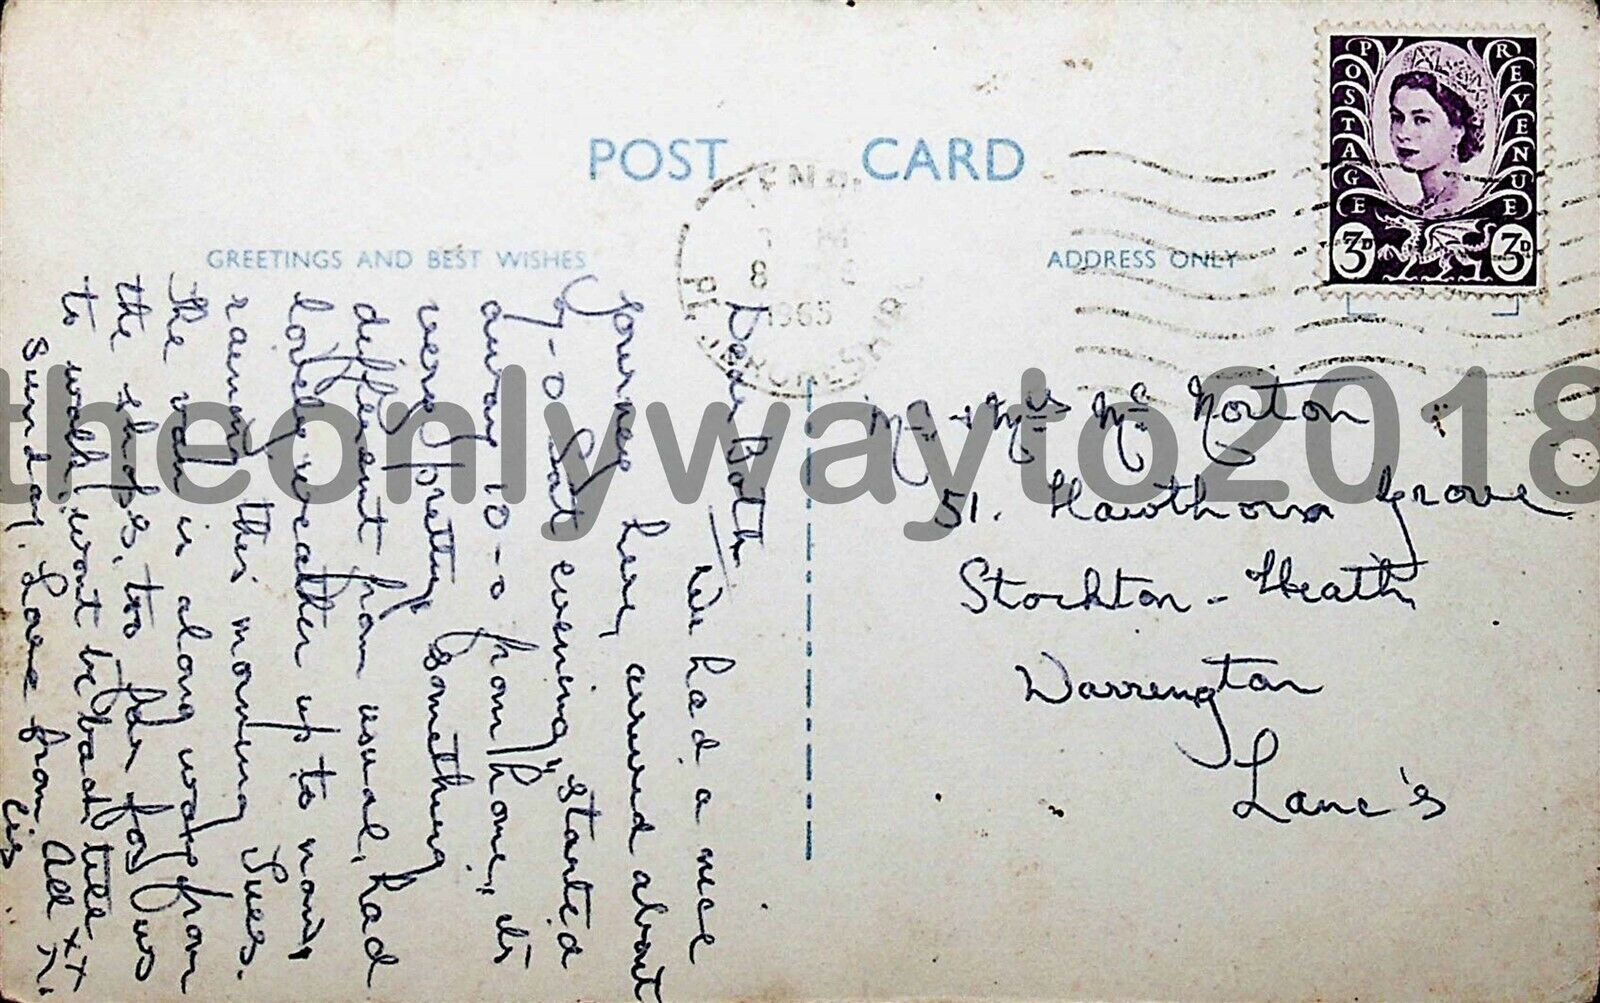 POST CARD
GREETINGS AND BEST WISHES
ADDRESS ONLY
POSTAGE REVENUE
3D 3D
8
1965
Dear Both
We had a nice
journey here, arrived about
6-0 Sat evening, started
away 10-0 from home, its
very pretty, something
different from usual, had
lovely weather up to now,
raining this morning Tues.
The van is along way from
the shops, too far for us
to walk, wont be back till
Sunday. Love from All xx
Cis
Mr + Mrs Mc Norton
51. Hawthorn Grove
Stockton-Heath
Warrington
Lanc's
theonlywayto2018